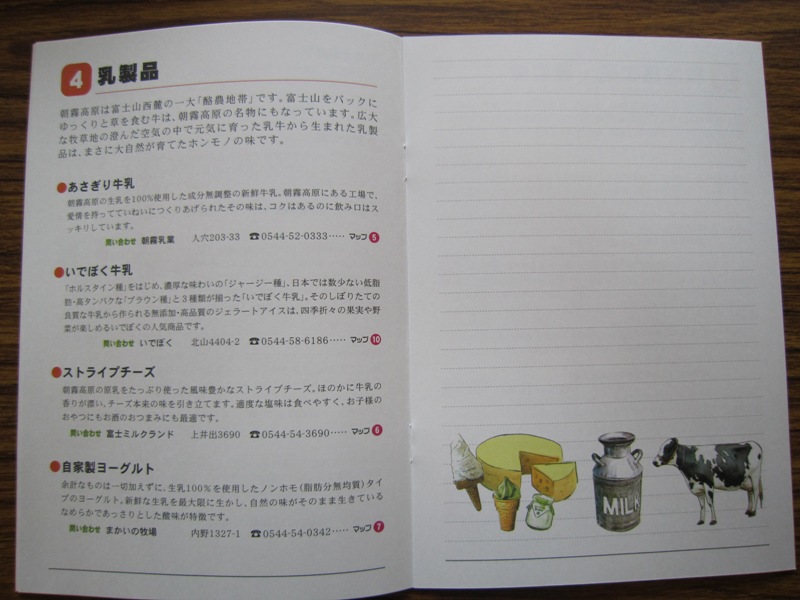 4 乳製品
朝霧高原は富士山西麓の一大「酪農地帯」です。富士山をバックに
ゆっくりと草を食む牛は、朝霧高原の名物にもなっています。広大
な牧草地の澄んだ空気の中で元気に育った乳牛から生まれた乳製
品は、まさに大自然が育てたホンモノの味です。
●あさぎり牛乳
朝霧高原の生乳を100%使用した成分無調整の新鮮牛乳。朝霧高原にある工場で、
愛情を持ってていねいにつくりあげられたその味は、コクはあるのに飲み口はス
ッキリしています。
問い合わせ 朝霧乳業 人穴203-33 ☎0544-52-0333‥‥‥ マップ 5
●いでぼく牛乳
「ホルスタイン種」をはじめ、濃厚な味わいの「ジャージー種」、日本では数少ない低脂
肪・高タンパクな「ブラウン種」と3種類が揃った「いでぼく牛乳」。そのしぼりたての
良質な牛乳から作られる無添加・高品質のジェラートアイスは、四季折々の果実や野
菜が楽しめるいでぼくの人気商品です。
問い合わせ いでぼく 北山4404-2 ☎0544-58-6186‥‥‥ マップ 10
●ストライプチーズ
朝霧高原の原乳をたっぷり使った風味豊かなストライプチーズ。ほのかに牛乳の
香りが漂い、チーズ本来の味を引き立てます。適度な塩味は食べやすく、お子様の
おやつにもお酒のおつまみにも最適です。
問い合わせ 富士ミルクランド 上井出3690 ☎0544-54-3690‥‥‥ マップ 6
●自家製ヨーグルト
余計なものは一切加えずに、生乳100%を使用したノンホモ(脂肪分無均質)タイ
プのヨーグルト。新鮮な生乳を最大限に生かし、自然の味がそのまま生きている
なめらかであっさりとした酸味が特徴です。
問い合わせ まかいの牧場 内野1327-1 ☎0544-54-0342‥‥‥ マップ 7
MILK